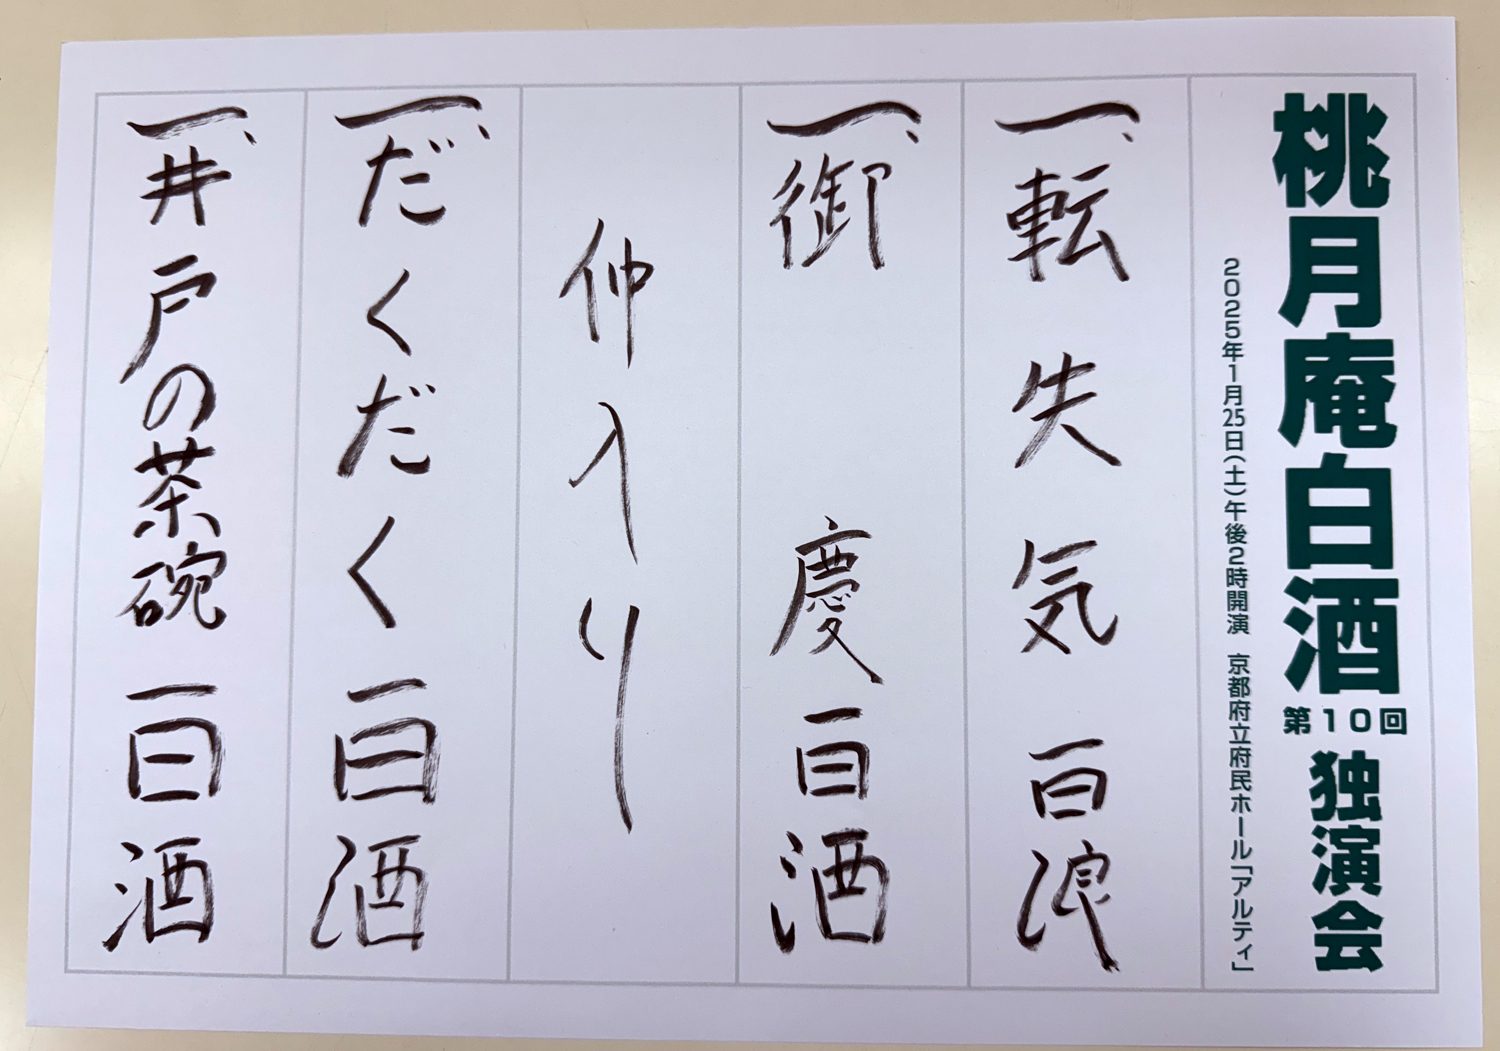 桃月庵白酒 第10回 独演会
2025年1月25日(土)午後2時開演 京都府立府民ホール「アルティ」
一、転失気 白浪
一、御慶 白酒
仲入り
一、だくだく 白酒
一、井戸の茶碗 白酒